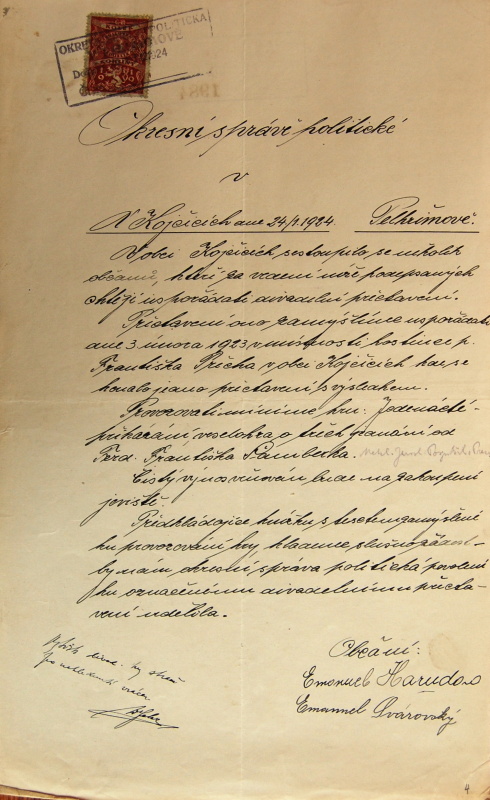 Okresní správě politické
v
V Kojčicích dne 24/1. 1924. Pelhřimově.
V obci Kojčicích sestoupilo se několik
občanů, kteří za vedení níže podepsaných
chtějí uspořádati divadelní představení.
Představení ono zamýšlíme uspořádati
dne 3. února 1923 v místnosti hostince p.
Františka Přecha v obci Kojčicích kde se
konalo jedno představení s výsledkem.
Provozovati míníme hru: Jedenácté
přikázání, veselohra o třech jednání od
Ferd. Františka Šamberka.
Čistý výnos věnován bude na zakoupení
jeviště.
Předkládajíce knížku s textem zamýšlené
ku provozování hry, klademe slušnou žádost
by nám okresní správa politická povolení
ku označenému divadelnímu předsta-
vení udělila.
Občani:
Emanuel Harudo
Emanuel Svárovský
4